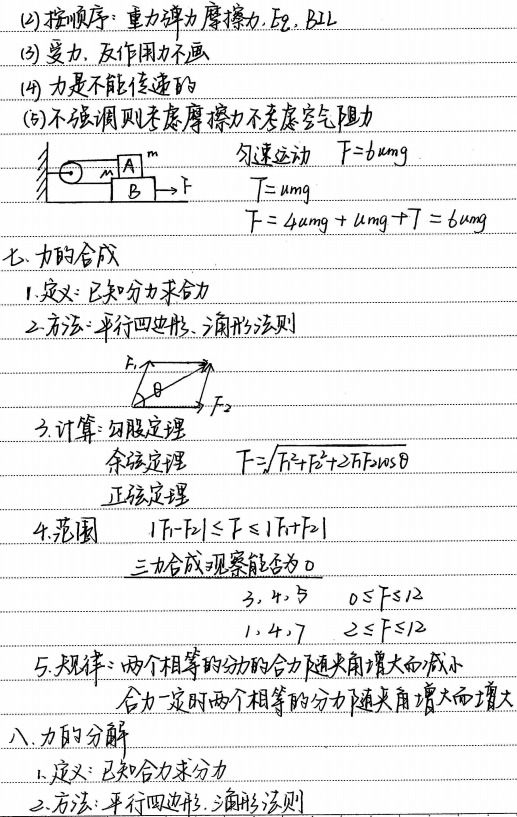 (2) 按顺序:重力弹力摩擦力.Eq.BIL
(3) 受力.反作用力不画
(4) 力是不能传递的
(5) 不强调则考虑摩擦力不考虑空气阻力
匀速运动 F=6umg
m A m B F
T=umg
F=4umg+umg+T=6umg
七.力的合成
1.定义:已知分力求合力
2.方法:平行四边形、三角形法则
F₁ θ F₂
3.计算:勾股定理
余弦定理 F=√F₁²+F₂²+2F₁F₂cosθ
正弦定理
4.范围 |F₁-F₂|≤F≤|F₁+F₂|
三力合成观察能否为0
3,4,5 0≤F≤12
1,4,7 2≤F≤12
5.规律:两个相等的分力的合力随夹角增大而减小
合力一定时两个相等的分力随夹角增大而增大
八.力的分解
1.定义:已知合力求分力
2.方法:平行四边形.三角形法则